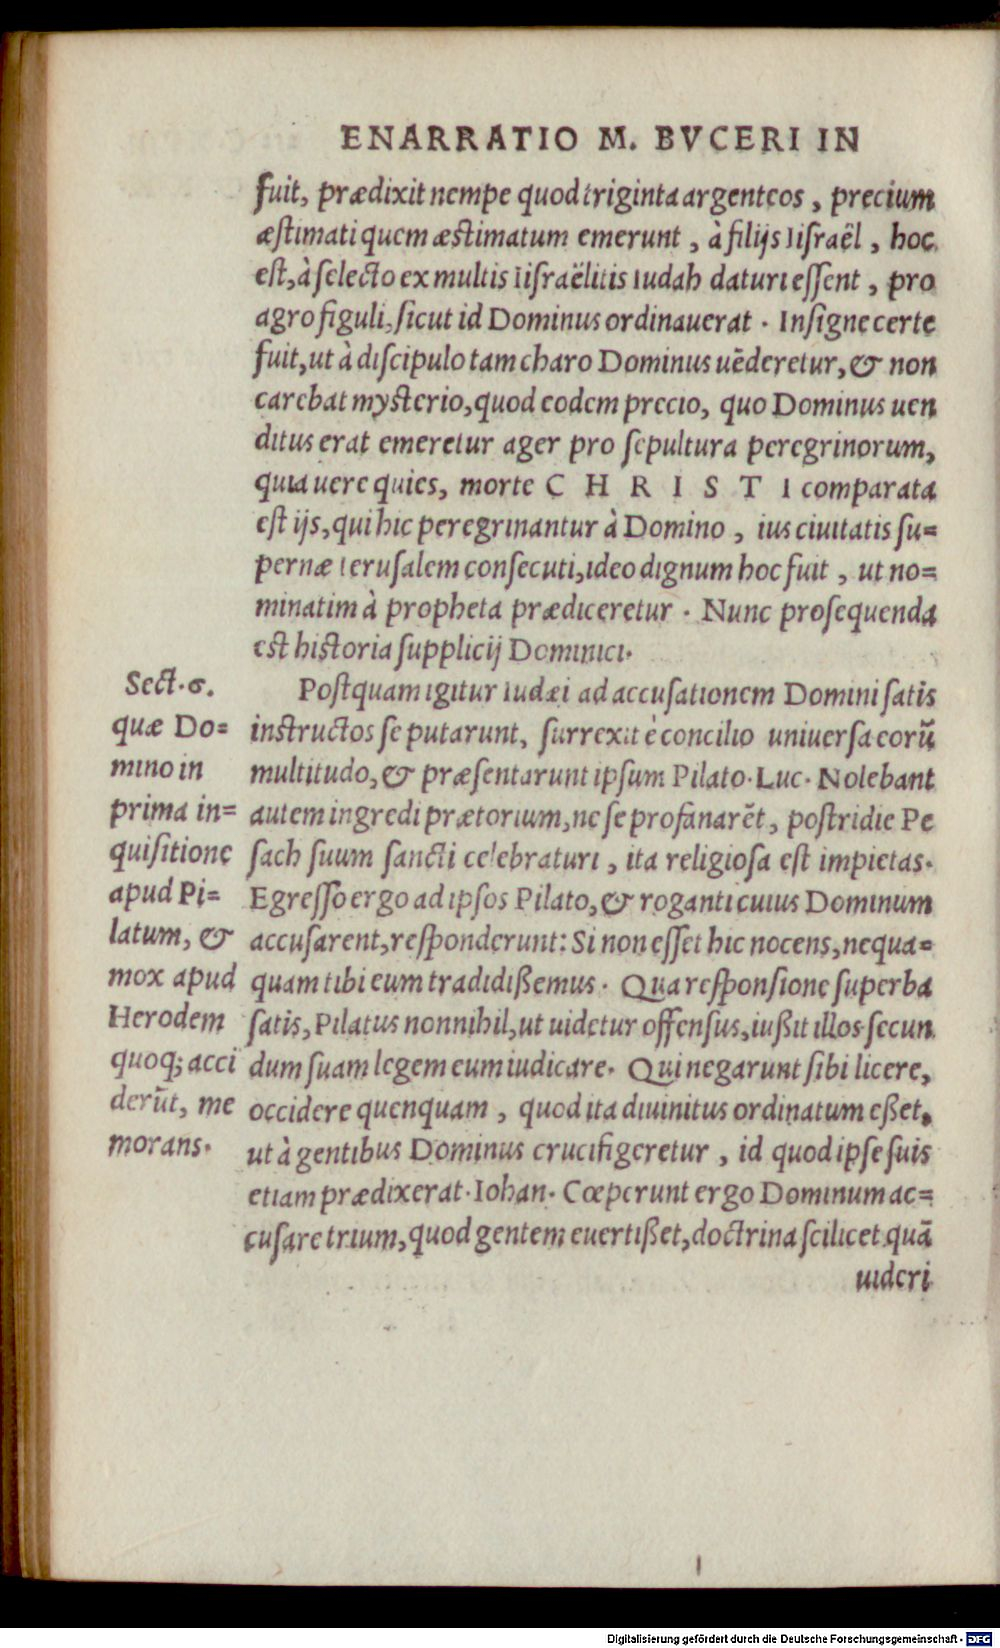 ENARRATIO M. BVCERI IN
fuit, prædixit nempe quod triginta argenteos, precium
æstimati quem æstimatum emerunt, à filijs Iisraël, hoc
est, à selecto ex multis Iisraëlitis Iudah daturi essent, pro
agro figuli, sicut id Dominus ordinauerat. Insigne certe
fuit, ut à discipulo tam charo Dominus uēderetur, & non
carebat mysterio, quod eodem precio, quo Dominus uen
ditus erat emeretur ager pro sepultura peregrinorum,
quia uere quies, morte C H R I S T I comparata
est ijs, qui hic peregrinantur à Domino, ius ciuitatis su=
pernæ Ierusalem consecuti, ideo dignum hoc fuit, ut no=
minatim à propheta prædiceretur. Nunc prosequenda
est historia supplicij Dominici.
Sect. 6.
quæ Do=
mino in
prima in=
quisitione
apud Pi=
latum, &
mox apud
Herodem
quoq; acci
derūt, me
morans.
Postquam igitur Iudæi ad accusationem Domini satis
instructos se putarunt, surrexit è concilio uniuersa eorū
multitudo, & præsentarunt ipsum Pilato. Luc. Nolebant
autem ingredi prætorium, ne se profanarēt, postridie Pe
sach suum sancti celebraturi, ita religiosa est impietas.
Egresso ergo ad ipsos Pilato, & roganti cuius Dominum
accusarent, responderunt: Si non esset hic nocens, nequa=
quam tibi eum tradidißemus. Qua responsione superba
satis, Pilatus nonnihil, ut uidetur offensus, iußit illos secun
dum suam legem eum iudicare. Qui negarunt sibi licere,
occidere quenquam, quod ita diuinitus ordinatum eßet,
ut à gentibus Dominus crucifigeretur, id quod ipse suis
etiam prædixerat. Iohan. Cœperunt ergo Dominum ac=
cusare trium, quod gentem euertißet, doctrina scilicet quā
uideri
Digitalisierung gefördert durch die Deutsche Forschungsgemeinschaft - DFG